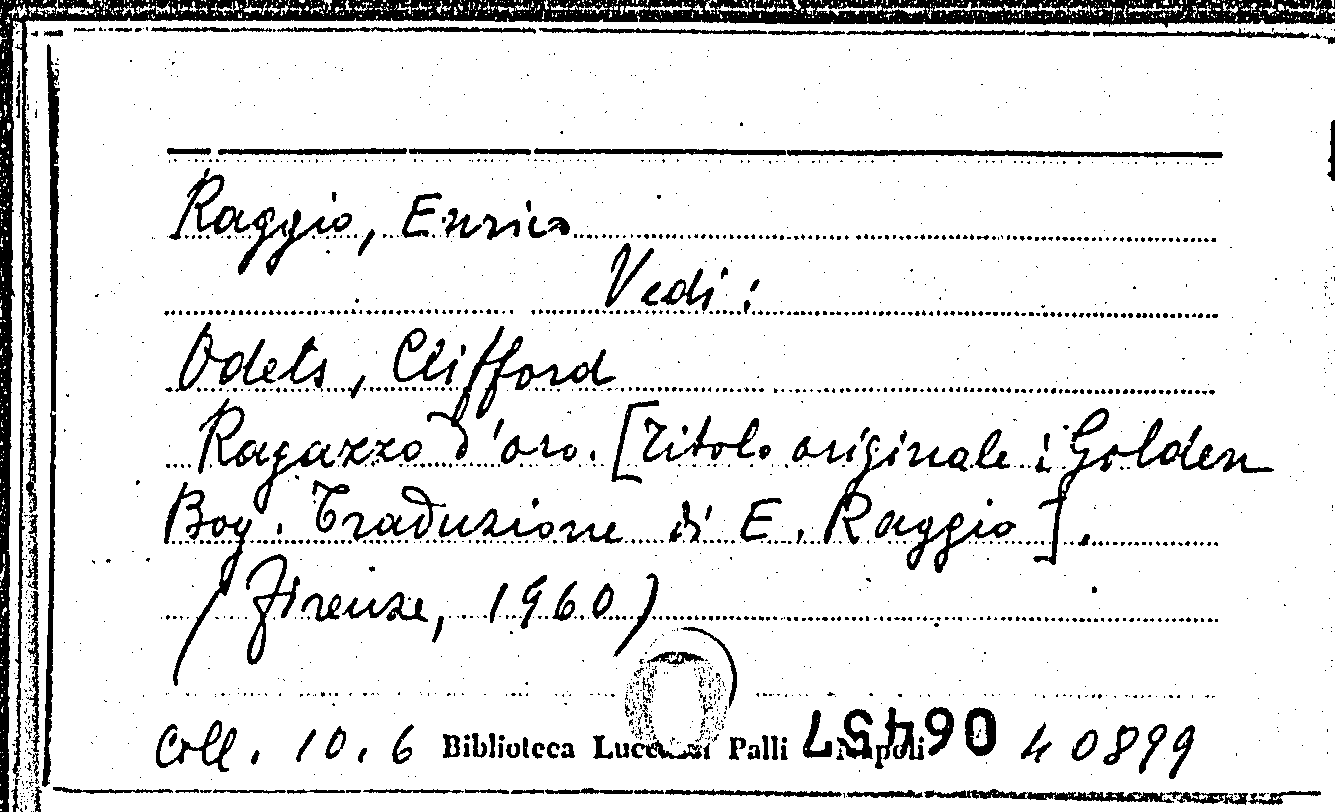 Raggio, Enrico
Vedi:
Odets, Clifford
Ragazzo d'oro. [Titolo originale: Golden
Boy. Traduzione di E. Raggio].
(Firenze, 1960)
Coll. 10.6 Biblioteca Lucchesi Palli Napoli 40899